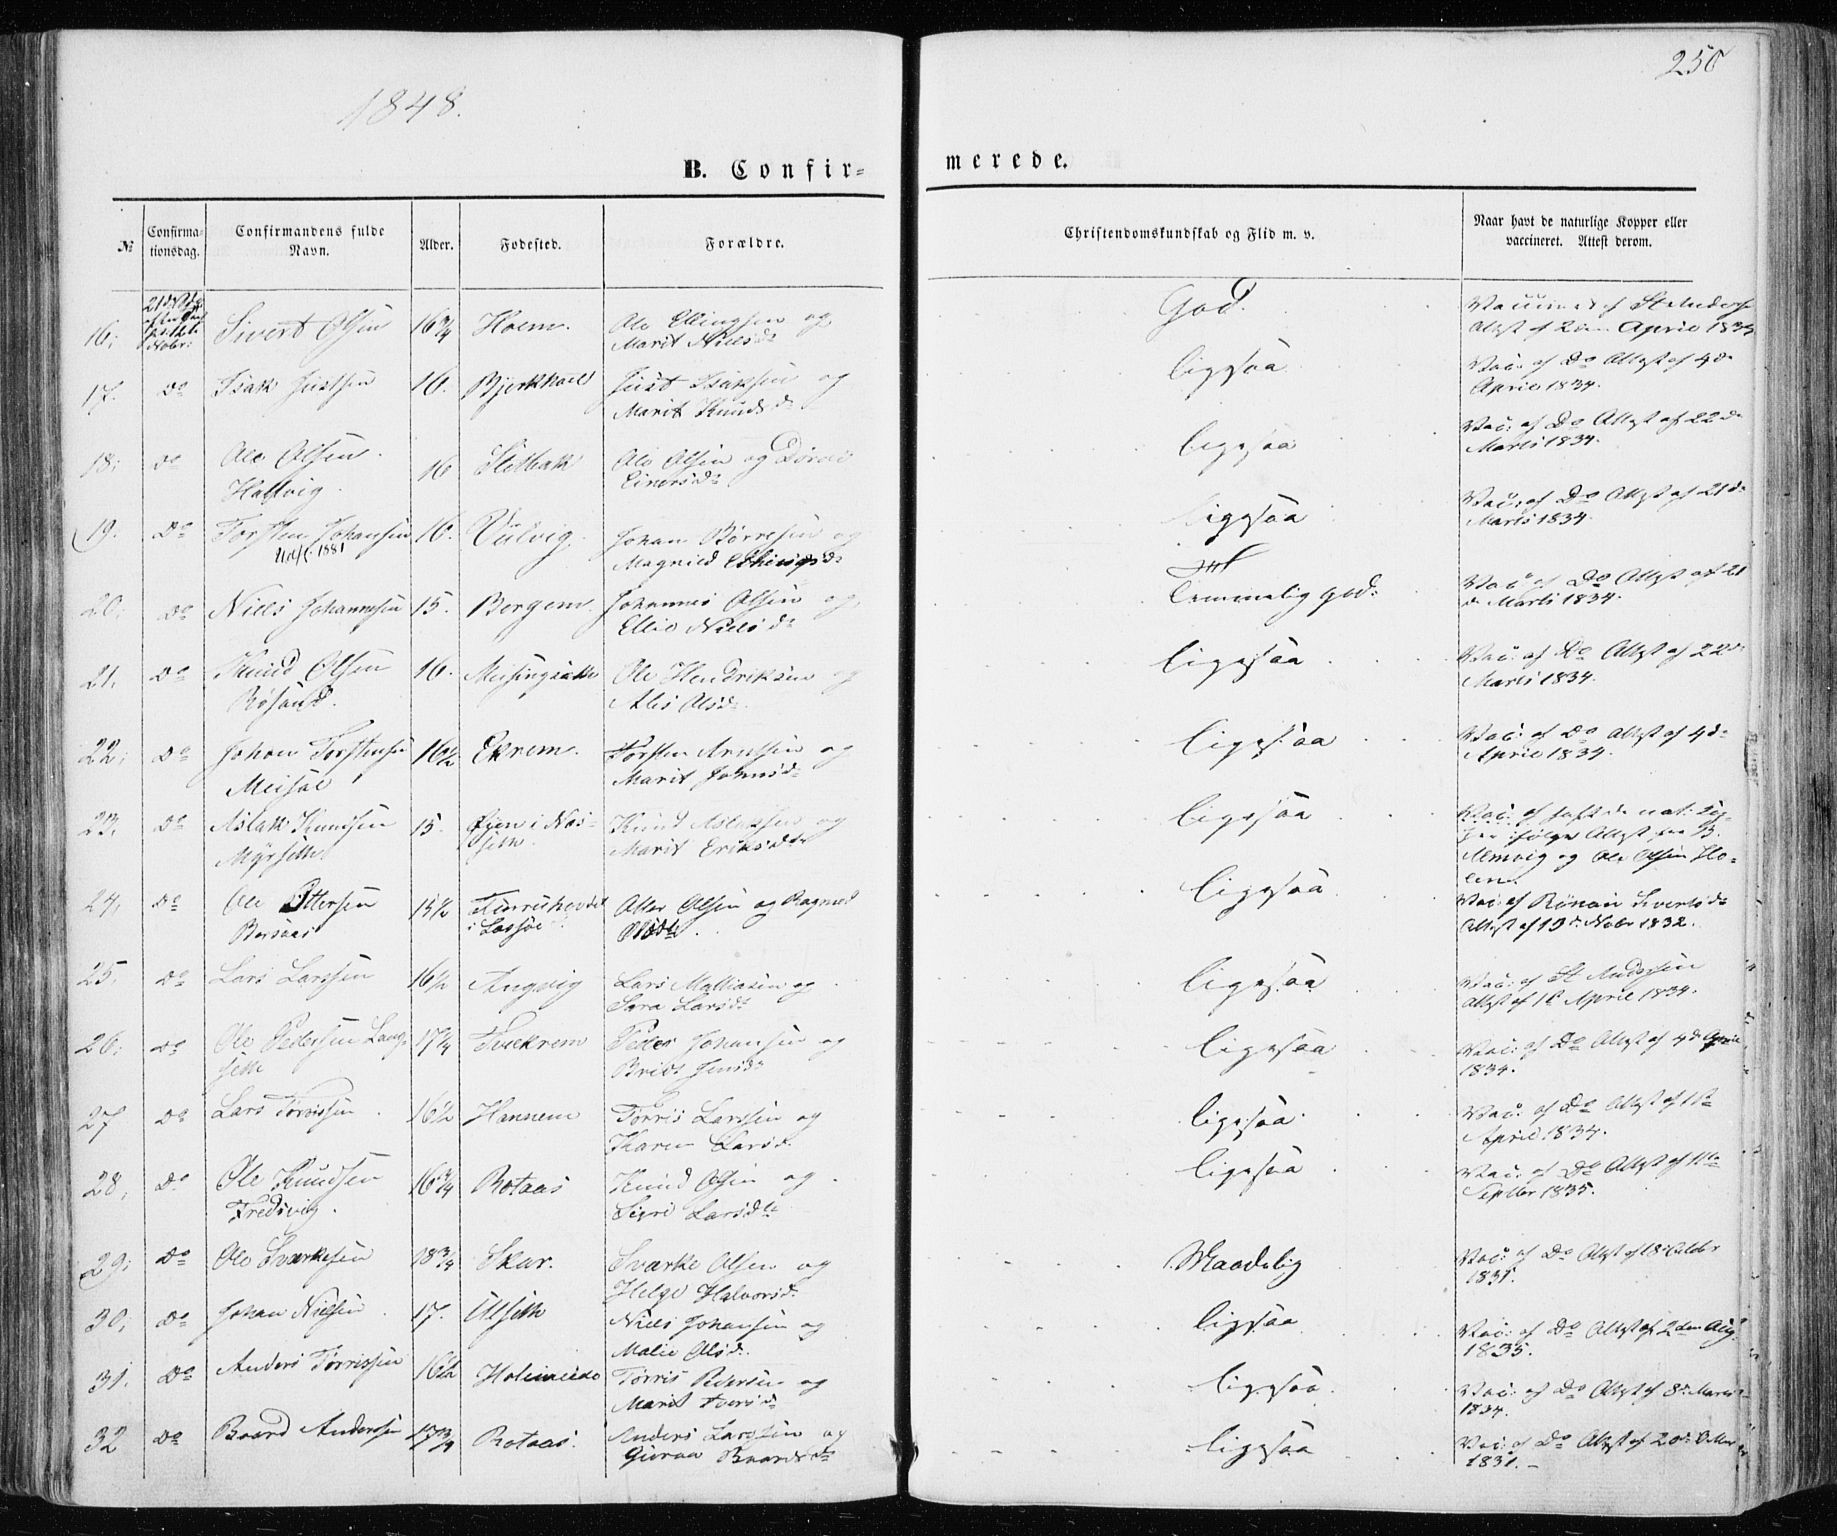 250
1848.
B. Confir= merede.
№ Confirma-tionsdag. Confirmandens fulde Navn. Alder. Fødested. Forældre. Christendomskundskab og Flid m. v. Naar havt de naturlige Kopper eller vaccineret. Attest derom.
16; Sivert Olsen 16 3/4 Hoem. Ole Ellingsen og God. Vaccineret af St. Anderse
Marit Nielsd: Attest af 2den April 1834
17. Do Isak Justsen 16. Just Isaksen og ligesaa Vac: af Do Attest af 4de
Marit Knudsd: April 1834.
18; Do Ole Olsen 16 Ole Olsen og ligesaa Vac: af Do Attest af 22de
Halsvig Marts 1834.
19. Do Torsten Johansen 16. Vulvig. Johan Børresen og ligesaa Vac: af Do Attest af 21de
Udst. 1881 Magnild Marts 1834.
20; Do Niels Johannesen 15. Bergem. Johannes Olsen og Temmelig god: Vac: af Do Attest af 21
Ellie Nielsd: de Marts 1834.
21, Do Knud Olsen 16. Ole Hendriksen og ligesaa Vac: af Do Attest af 22de
Røsand. Olsd: Marts 1834.
22; Do Johan Torstensen 16 1/2 Ekrem. Torsten Arnesen og ligesaa Vac: af Do Attest af 4de
Meisal Marit Johnsd: April 1834.
23, Do Aslak Knudsen 15. Øien i Næs- Knud Aslaksen og ligesaa
Myrseth seth. Marit Eriksd: ifølge Attest fra
og Ole Olsen Ho-
len.
24, Do Ole Ottersen 15 1/2 Otter Olsen og Ragnild ligesaa Vac: af Sivertsd:
i Olsd: Attest af 19de Nobr 1832.
25, Do Lars Larssen 16 1/2 Angvig Lars Mathiasen og ligesaa Vac: af St Andersen
Sara Larsd: Attest af April 1834.
26; Do Ole Pedersen Lang- 17 1/4 Peder Johansen og ligesaa Vac: af Do Attest af 4de April
seth Jensd: 1834.
27 Do Lars Tørrissen 16 1/2 Hannem Tørris Larssen og ligesaa Vac: af Do Attest af
Karen Larsd: April 1834.
28, Do Ole Knudsen 16 3/4 Rotaas Knud Olsen og ligesaa Vac: af Do Attest af
Fredsvig. Sigri Larsd: Septbr 1835.
29; Do Ole Sværkesen 18 3/4 Skar. Sværke Olsen og Maadelig Vac: af Do Attest af 18 Octbr
Helge Halvorsd: 1831.
30; Do Johan Nielsen 17. Ulseth Niels Johansen og ligesaa Vac: af Do Attest af 2den Aug
Malie Olsd: 1835.
31. Do Anders Tørrissen 16 1/2 Tørris Pedersen og ligesaa Vac: af Do Attest af 8de Marts
Marit Iversd: 1834.
32 Do Baard Andersen 17 3/4 Rotaas. Anders Larssen og ligesaa Vac: af Do Attest af 20de
Guroa Baardsd: 1831.